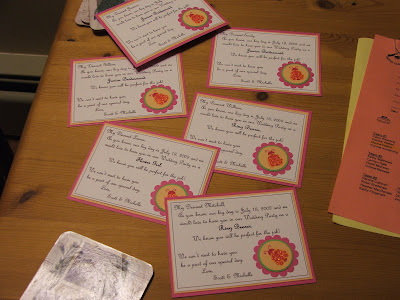 As you know our big day is July
would love to have you in our Wedding Party as a
Junior Bridesmaid
We know you will be perfect for the job!
We can't wait to have you
be a part of our special day.
Love,
Scott & Michelle
My Dearest
As you know our big day is July 18, 2009 and we
would love to have you in our Wedding Party as a
Junior Bridesmaid.
We know you will be perfect for the job!
We can't wait to have you
be a part of our special day.
Love,
Scott & Michelle
My Dearest
As you know our big day is July 18, 2009 and we
would love to have you in our Wedding Party as a
Junior Bridesmaid.
We know you will be perfect for the job!
We can't wait to have you
be a part of our special day.
Love,
Scott & Michelle
My Dearest William,
As you know our big day is July 18, 2009 and we
would love to have you in our Wedding Party as a
Ring Bearer.
We know you will be perfect for the job!
to have you
special day.
Love,
Scott & Michelle
My Dearest
As you know our big day is July 18, 2009 and we
would love to have you in our Wedding Party as a
Flower Girl.
We know you will be perfect for the job!
We can't wait to have you
be a part of our special day.
Love,
Scott & Michelle
My Dearest Mitchell,
As you know our big day is July 18, 2009 and we
would love to have you in our Wedding Party as a
Ring Bearer.
We know you will be perfect for the job!
We can't wait to have you
be a part of our special day.
Love,
Scott & Michelle